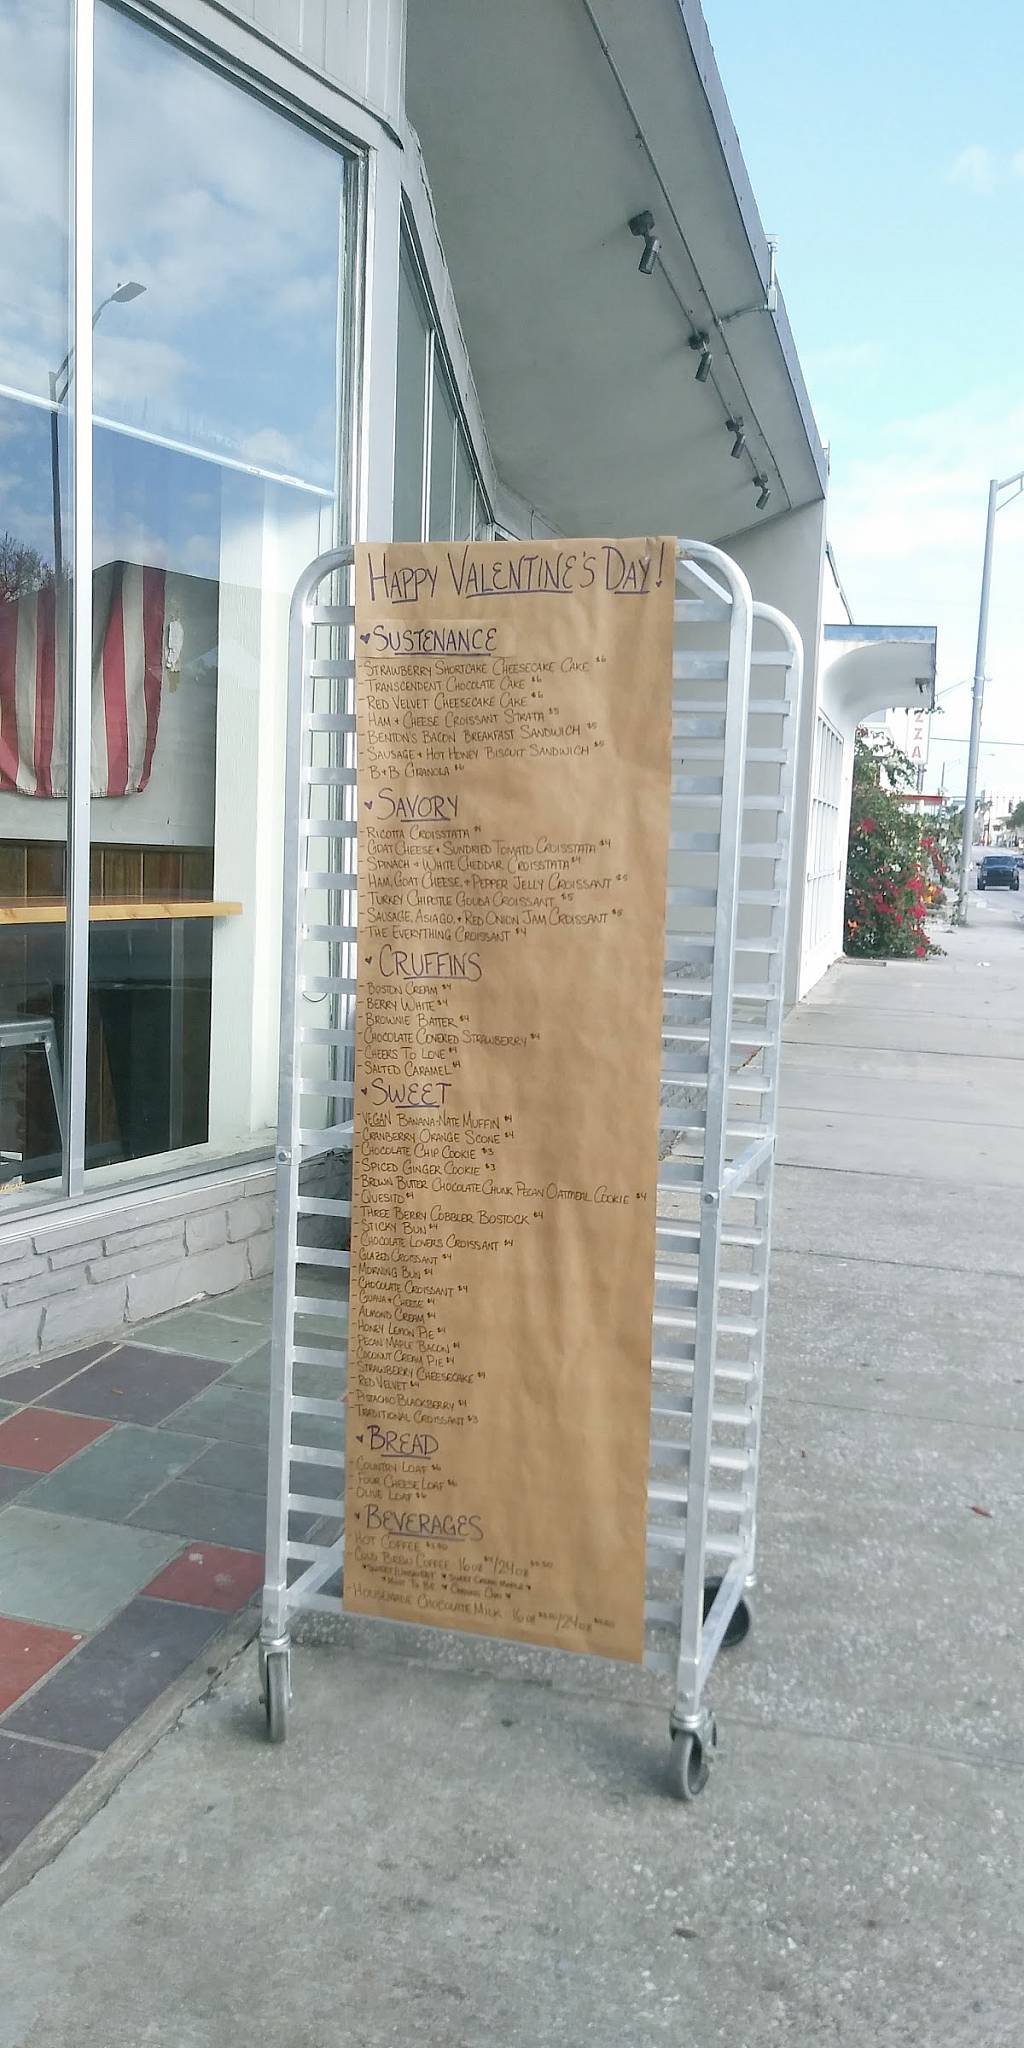 Happy Valentine's Day!
♥ Sustenance
- Strawberry Shortcake Cheesecake Cake $6
- Transcendent Chocolate Cake $6
- Red Velvet Cheesecake Cake $6
- Ham + Cheese Croissant Strata $5
- Benton's Bacon Breakfast Sandwich $5
- Sausage + Hot Honey Biscuit Sandwich $5
- B+B Granola $6
♥ Savory
- Ricotta Croisstata $4
- Goat Cheese + Sundried Tomato Croisstata $4
- Spinach + White Cheddar Croisstata $4
- Ham, Goat Cheese, + Pepper Jelly Croissant $5
- Turkey Chipotle Gouda Croissant $5
- Sausage, Asiago, + Red Onion Jam Croissant $5
- The Everything Croissant $4
♥ Cruffins
- Boston Cream $4
- Berry White $4
- Brownie Batter $4
- Chocolate Covered Strawberry $4
- Cheers To Love $4
- Salted Caramel $4
♥ Sweet
- Vegan Banana-Nate Muffin $4
- Cranberry Orange Scone $4
- Chocolate Chip Cookie $3
- Spiced Ginger Cookie $3
- Brown Butter Chocolate Chunk Pecan Oatmeal Cookie $4
- Quesito $4
- Three Berry Cobbler Bostock $4
- Sticky Bun $4
- Chocolate Lovers Croissant $4
- Glazed Croissant $4
- Morning Bun $4
- Chocolate Croissant $4
- Guava + Cheese $4
- Almond Cream $4
- Honey Lemon Pie $4
- Pecan Maple Bacon $4
- Coconut Cream Pie $4
- Strawberry Cheesecake $4
- Red Velvet $4
- Pistachio Blackberry $4
- Traditional Croissant $3
♥ Bread
- Country Loaf $6
- Four Cheese Loaf $6
- Olive Loaf $6
♥ Beverages
- Hot Coffee
- Cold Brew Coffee 16oz $4/24oz
- Housemade Chocolate Milk 16oz /24oz
ZZA